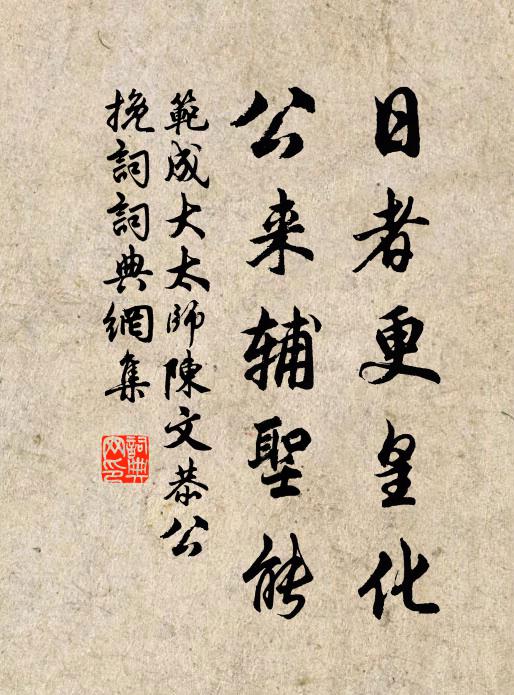 日者更皇化
公来辅聖能
範成大太師陳文恭公
挽詞詞典網集
詞典網印